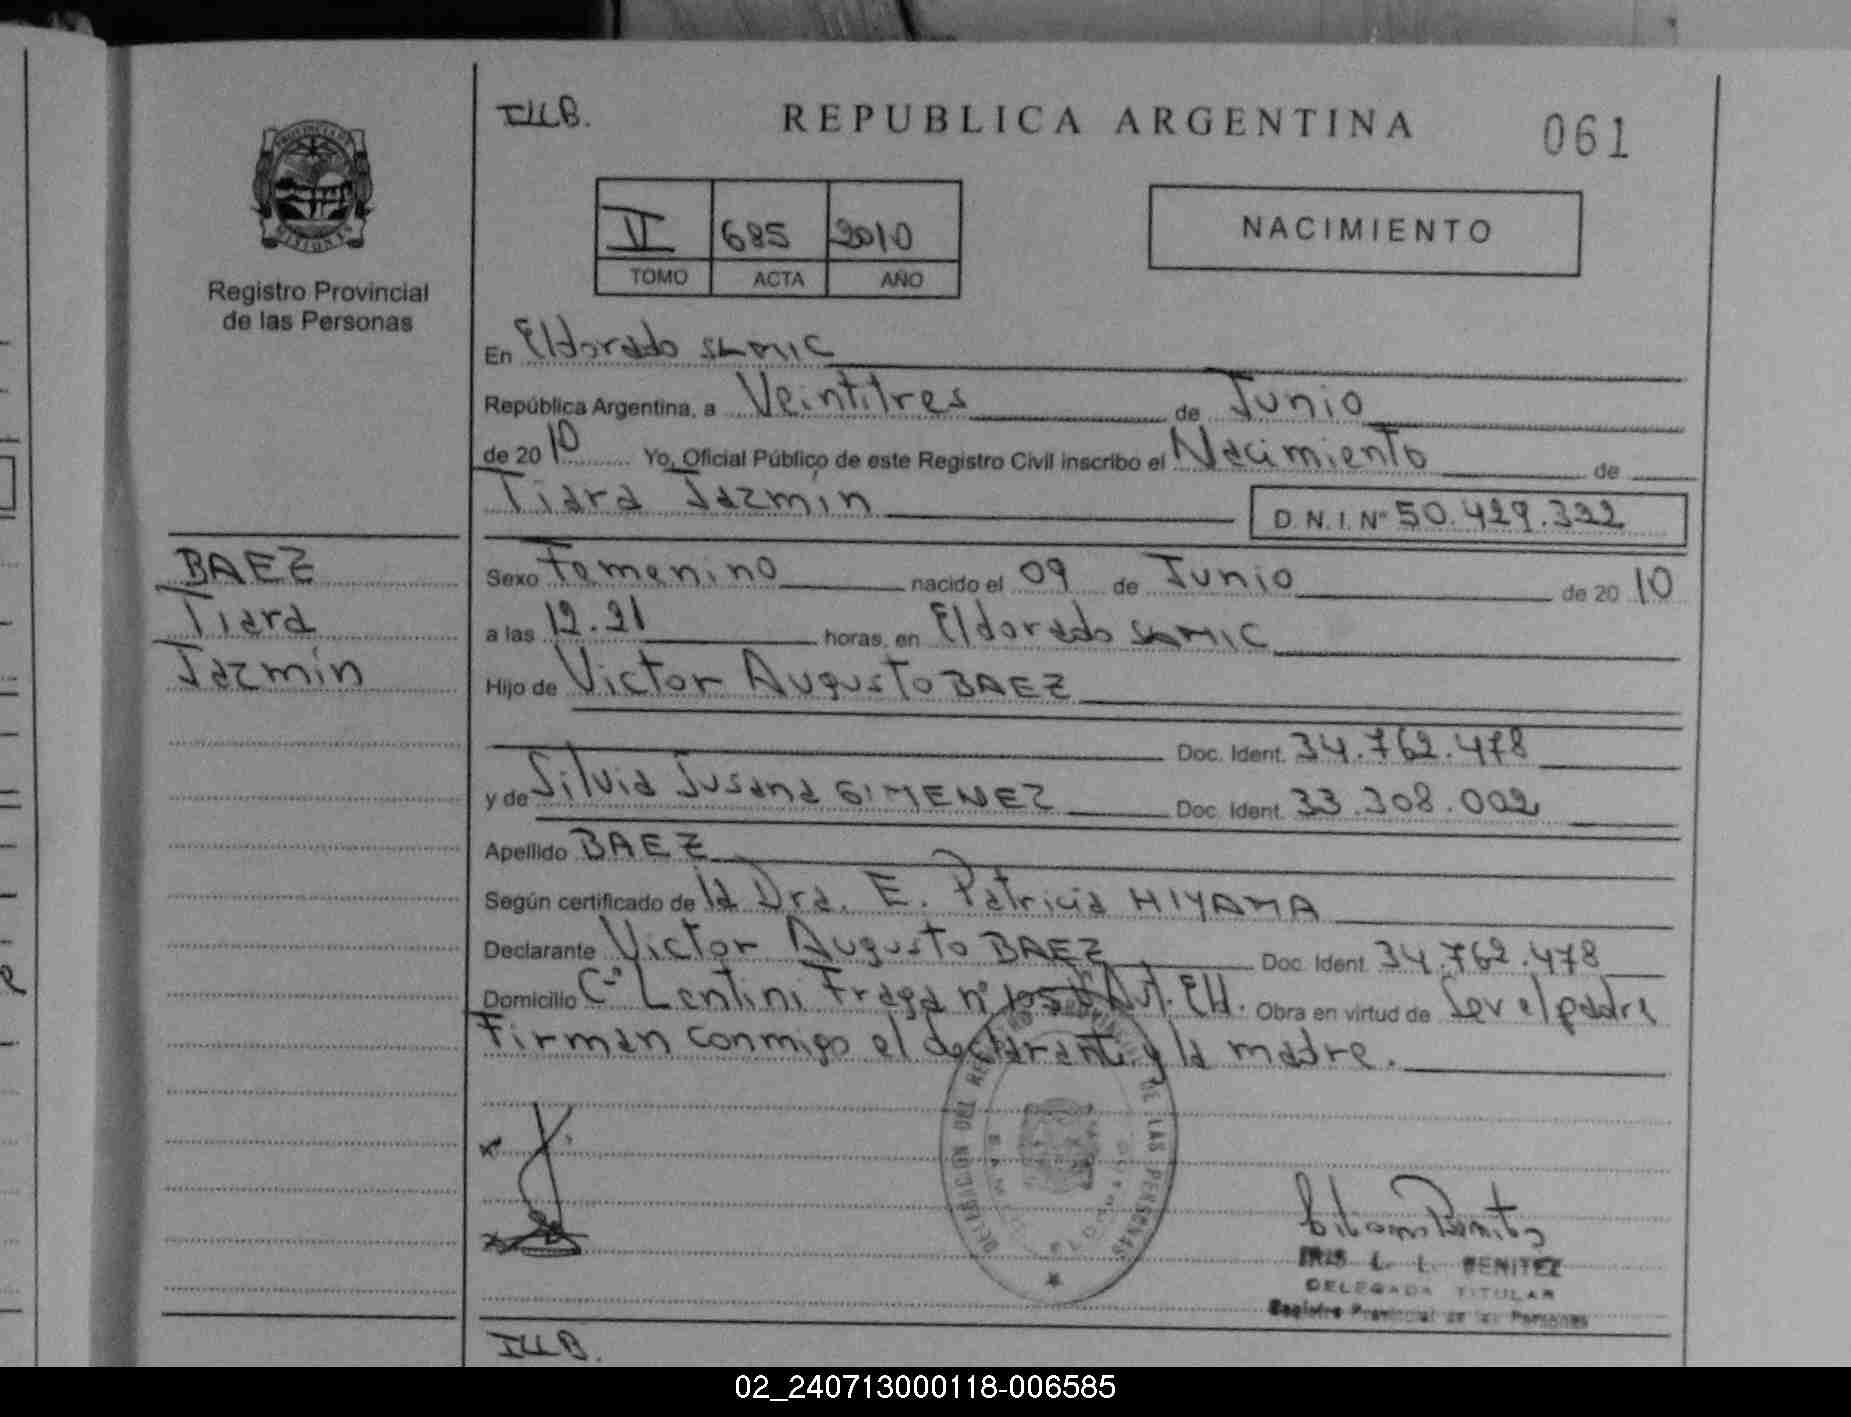 ILLB.
REPUBLICA ARGENTINA
061
PROVINCIA DE
MISIONES
II 685 2010
TOMO ACTA AÑO
NACIMIENTO
Registro Provincial
de las Personas
En Eldorado SAMIC
República Argentina, a Veintitres de Junio
de 2010 Yo, Oficial Público de este Registro Civil inscribo el Nacimiento de
Tiara Jazmin D.N.I. Nº 50.429.322
BAEZ
Tiara
Jazmin
Sexo Femenino nacido el 09 de Junio de 2010
a las 12.21 horas, en Eldorado SAMIC
Hijo de Victor Augusto BAEZ
Doc. Ident. 34.762.478
y de Silvia Susana GIMENEZ Doc. Ident. 33.308.002
Apellido BAEZ
Según certificado de la Dra. E. Patricia HIYAMA
Declarante Victor Augusto BAEZ Doc. Ident. 34.762.478
Domicilio Cº Lentini Fraga nº 105 Obra en virtud de Ser el padre
Firman conmigo el declarante y la madre.
DELEGACION DEL REGISTRO PROVINCIAL DE LAS PERSONAS
IRIS L. L. BENITEZ
DELEGADA TITULAR
Registro Provincial de las Personas
ILLB.
02_240713000118-006585